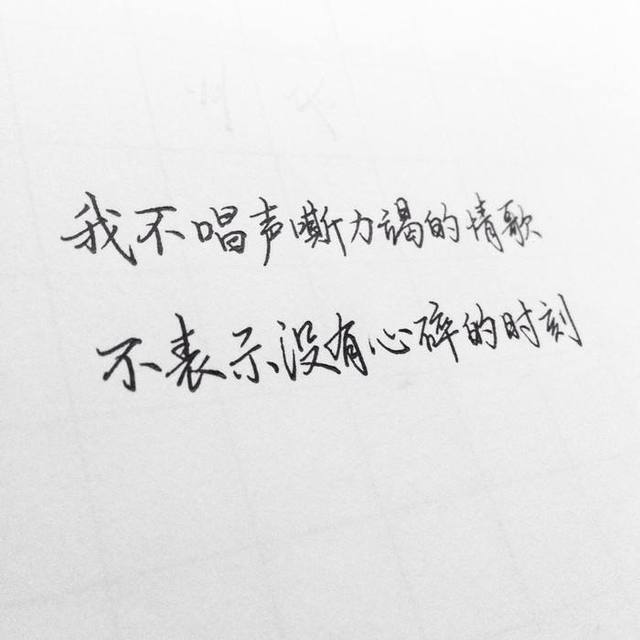 我不唱声嘶力谒的情歌
不表示没有心碎的时刻